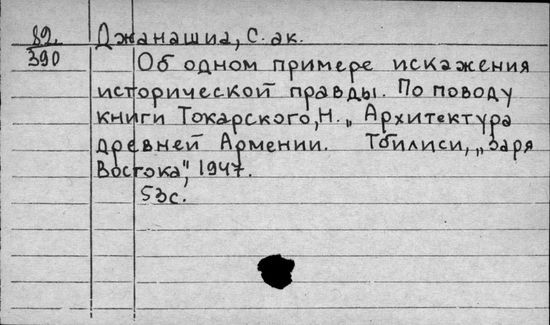 89.
390
Джанашиа, С. ак.
Об одном примере искажения
исторической правды. По поводу
книги Токарского, Н. „Архитектура
древней Армении. Тбилиси, „Заря
Востока", 1947.
53с.